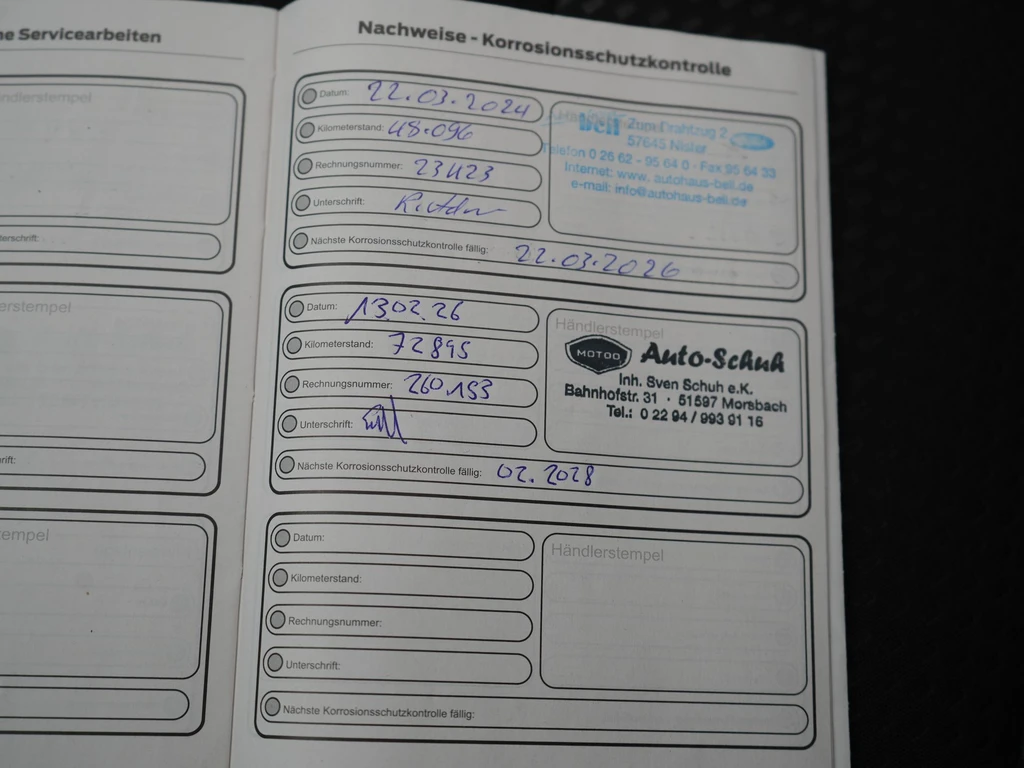 ne Servicearbeiten
ndlerstempel
terschrift:
erstempel
rift:
tempel
Nachweise - Korrosionsschutzkontrolle
Datum: 22.03.2024
Kilometerstand: 48.096
Rechnungsnummer: 23423
Unterschrift:
Nächste Korrosionsschutzkontrolle fällig: 22.03.2026
beil Zum Drahtzug 2
57645 Nister
Telefon 0 26 62 - 95 64 0 · Fax 95 64 33
Internet: www. autohaus-beil.de
e-mail: info@autohaus-beil.de
Datum: 13.02.26
Kilometerstand: 72895
Rechnungsnummer: 260.153
Unterschrift:
Nächste Korrosionsschutzkontrolle fällig: 02.2028
Händlerstempel
MOTOO Auto-Schuh
Inh. Sven Schuh e.K.
Bahnhofstr. 31 · 51597 Morsbach
Tel.: 0 22 94 / 993 91 16
Datum:
Kilometerstand:
Rechnungsnummer:
Unterschrift:
Nächste Korrosionsschutzkontrolle fällig:
Händlerstempel